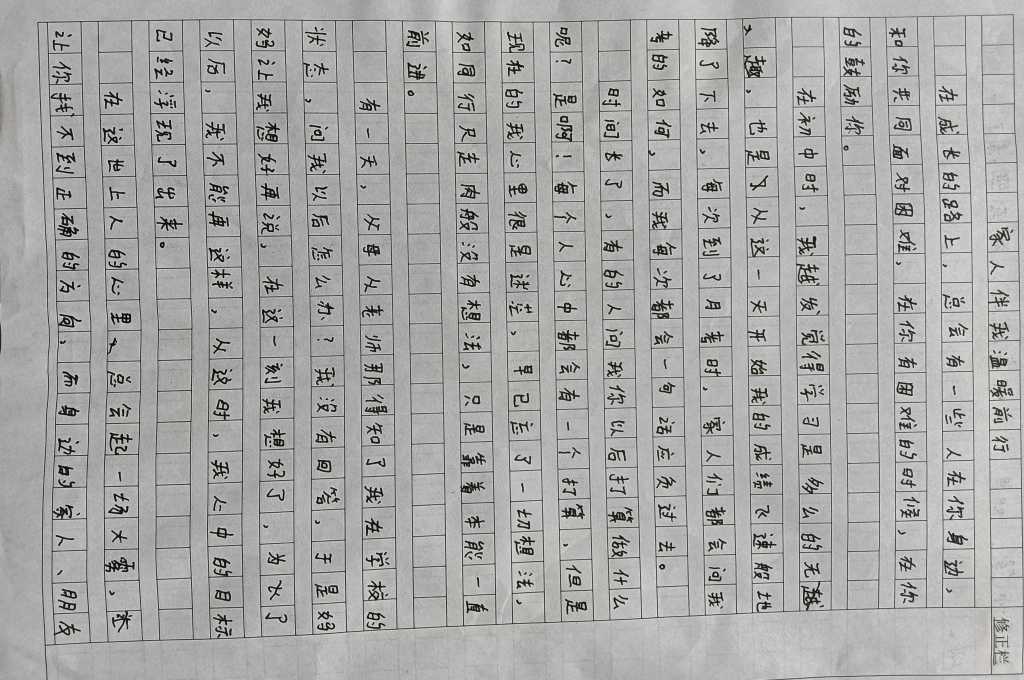 家人伴我温暖前行
在成长的路上，总会有一些人在你身边，
和你共同面对困难，在你有困难的时候，在你
的鼓励你。
在初中时，我越发觉得学习是多么的无趣
，也是从这一天开始我的成绩飞速般地
降了下去，每次到了月考时，家人们都会问我
考的如何，而我每次都会一句话应负过去。
时间长了，有的人问我你以后打算做什么
呢？是啊！每个人心中都会有一个打算，但是
现在的我心里很是迷茫，早已忘了一切想法，
如同行尸走肉般没有想法，只是靠着本能一直
前进。
有一天，父母从老师那得知了我在学校的
状态，问我以后怎么办？我没有回答，于是好
好让我想好再说，在这一刻我想好了，为了
以后，我不能再这样，从这时，我心中的目标
已经浮现了出来。
在这世上人的心里总会起一场大雾，
让你找不到正确的方向，而身边的家人、朋友
修正栏